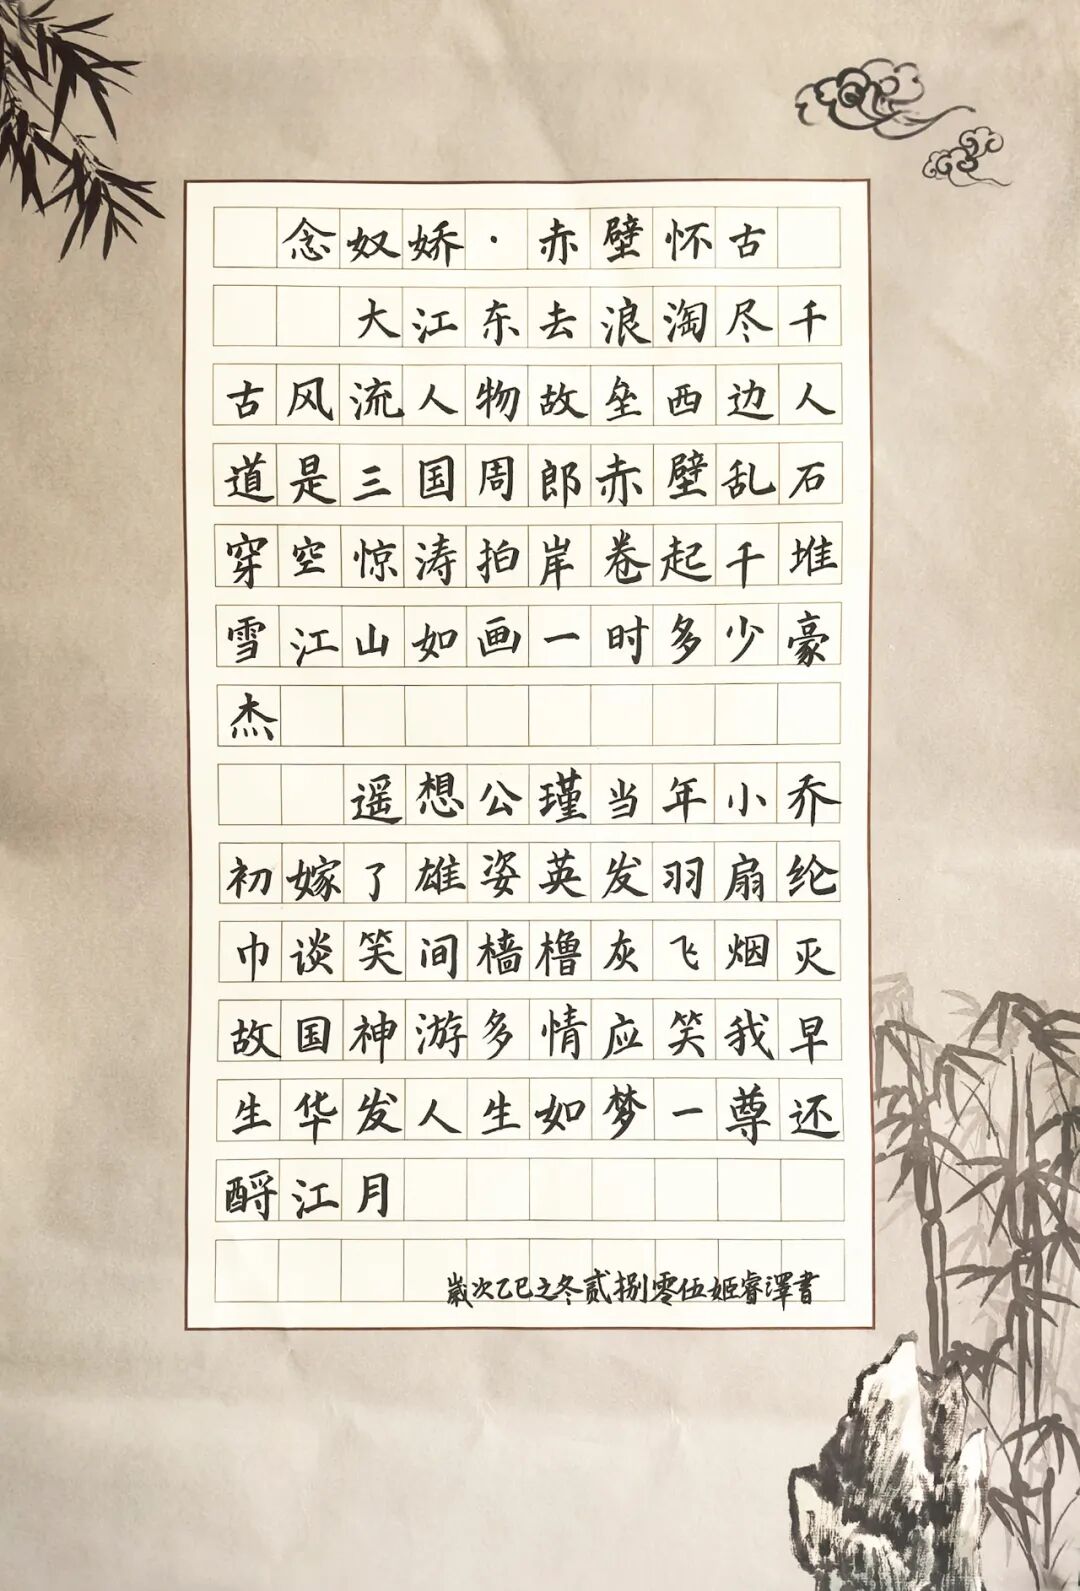 念奴娇·赤壁怀古
大江东去浪淘尽千
古风流人物故垒西边人
道是三国周郎赤壁乱石
穿空惊涛拍岸卷起千堆
雪江山如画一时多少豪
杰
遥想公瑾当年小乔
初嫁了雄姿英发羽扇纶
巾谈笑间樯橹灰飞烟灭
故国神游多情应笑我早
生华发人生如梦一尊还
酹江月
嵗次乙巳之冬贰捌零伍姬睿澤書